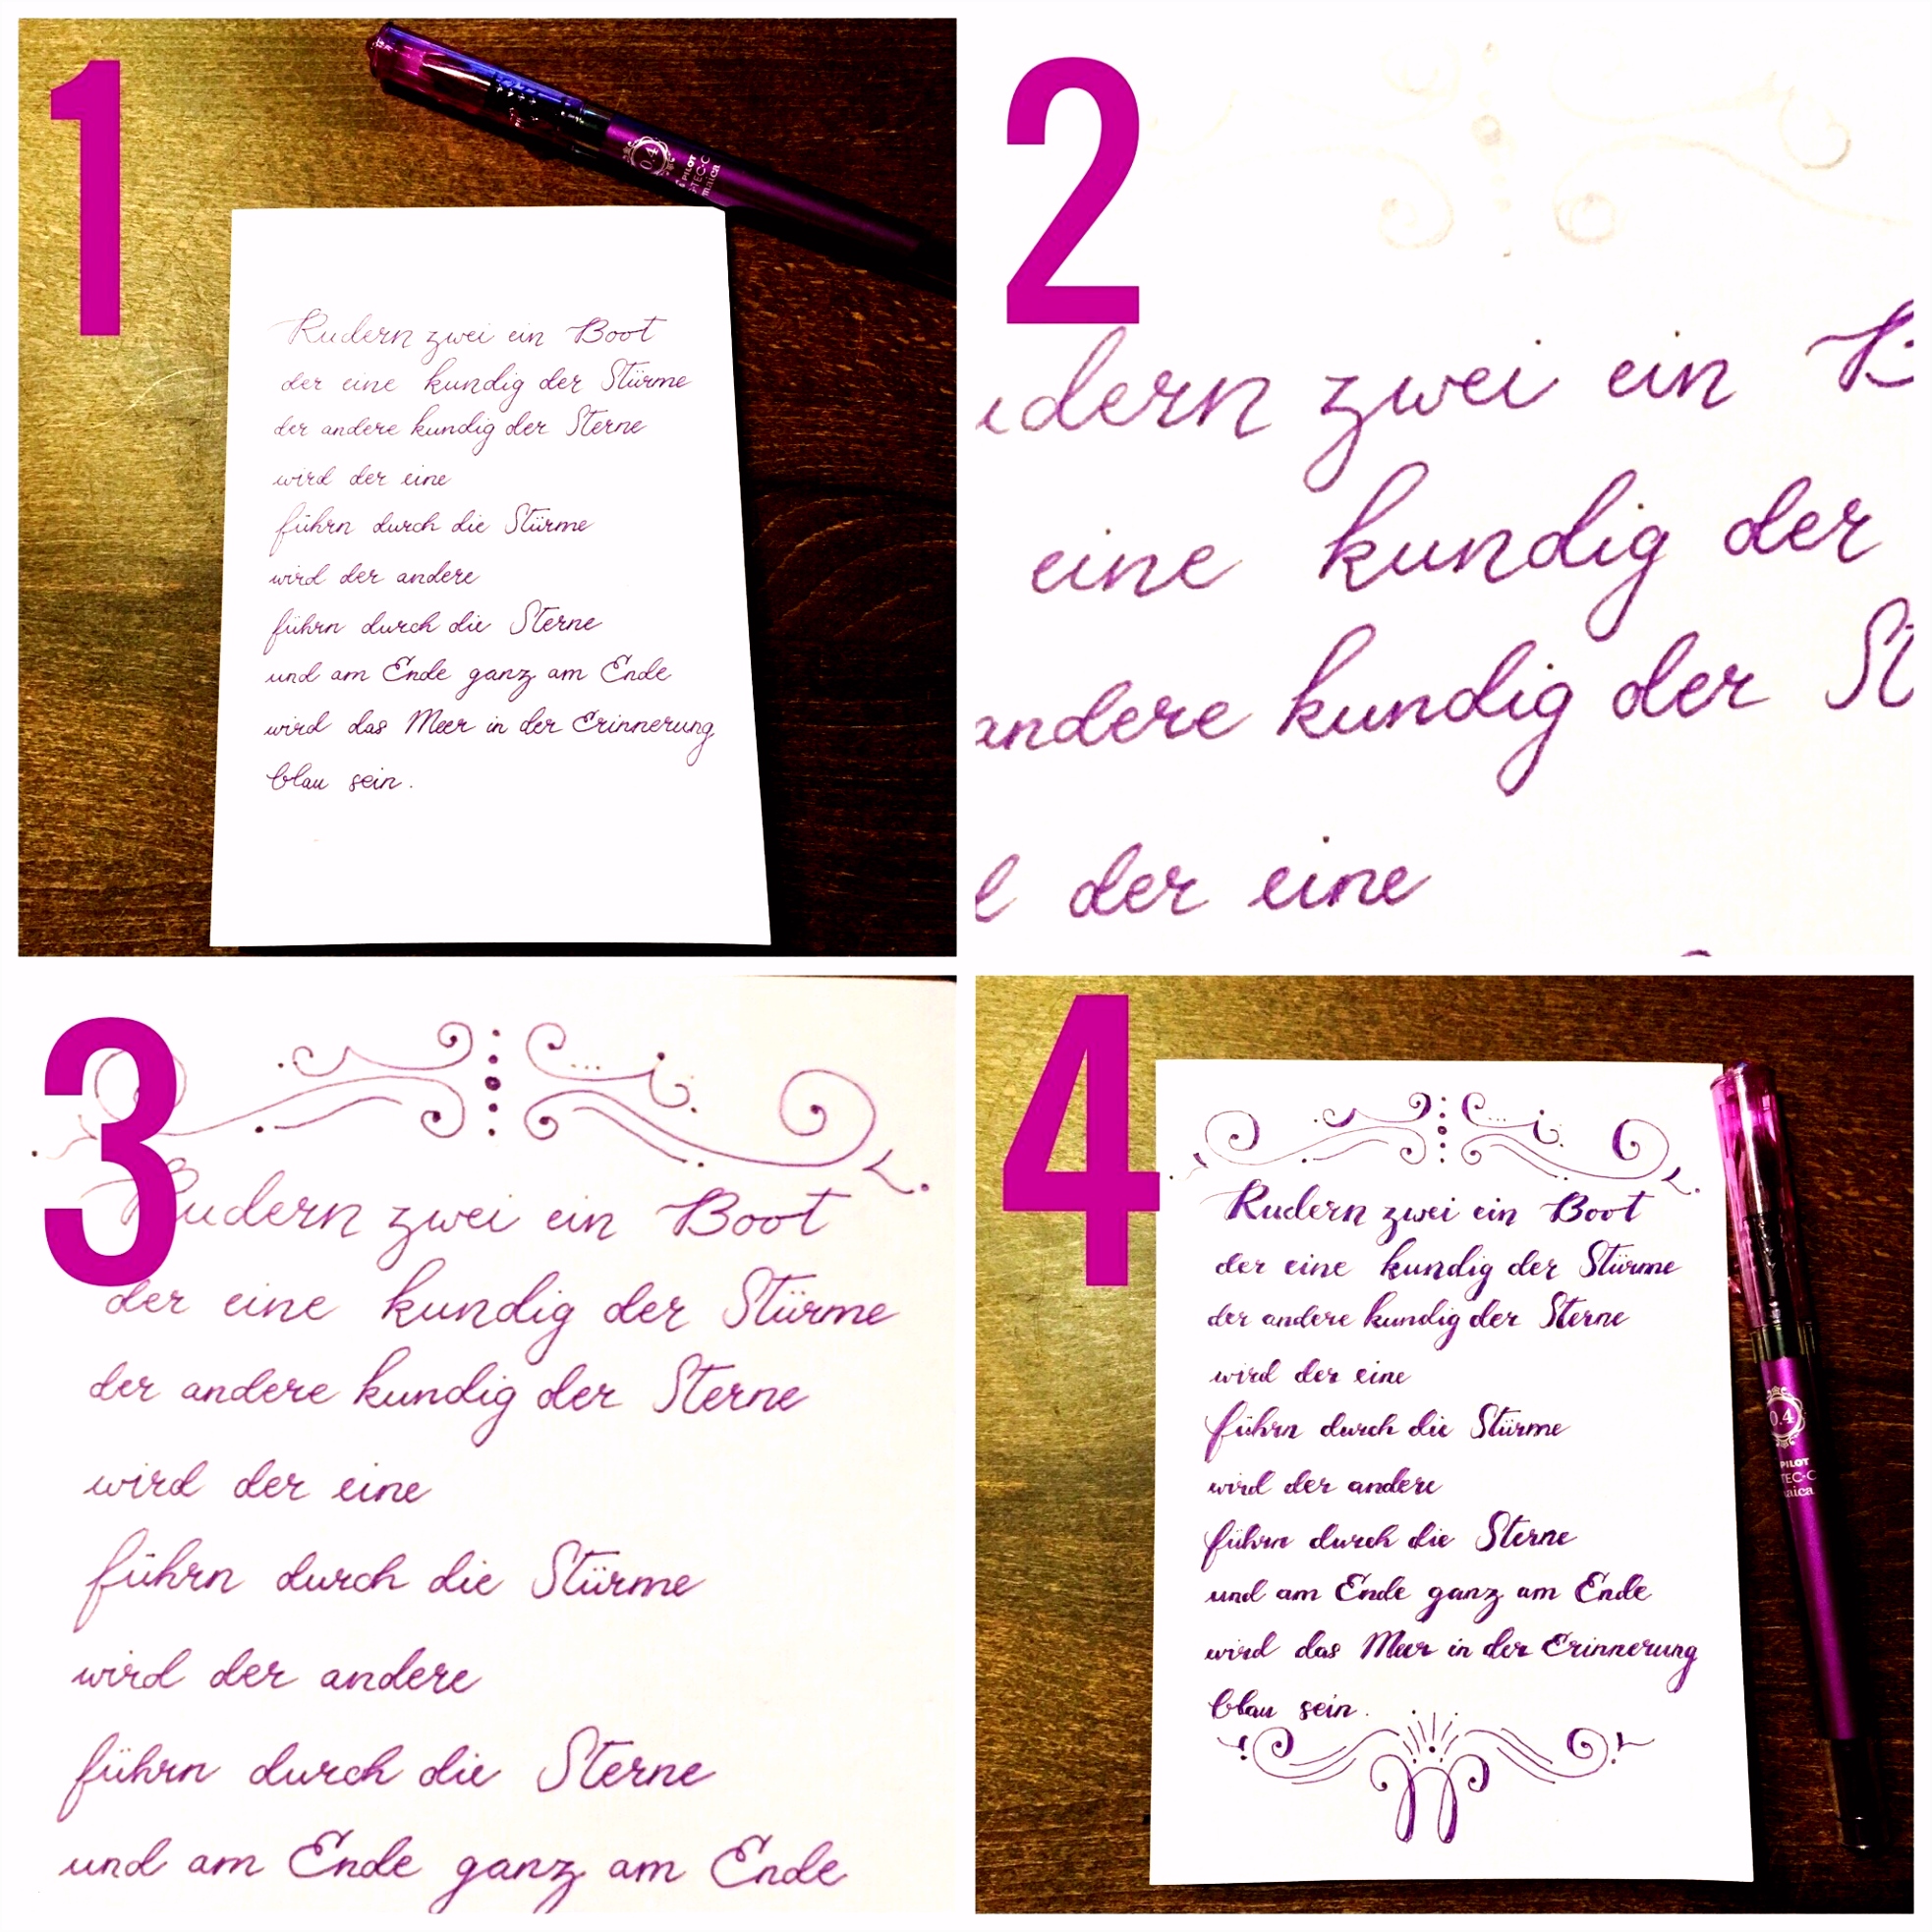 1
0.4
PILOT
TEC-C
maica
Rudern zwei ein Boot
der eine kundig der Stürme
der andere kundig der Sterne
wird der eine
führn durch die Stürme
wird der andere
führn durch die Sterne
und am Ende ganz am Ende
wird das Meer in der Erinnerung
blau sein.
2
dern zwei ein
eine kundig der
andere kundig der St
der eine
3
Rudern zwei ein Boot
der eine kundig der Stürme
der andere kundig der Sterne
wird der eine
führn durch die Stürme
wird der andere
führn durch die Sterne
und am Ende ganz am Ende
4
Rudern zwei ein Boot
der eine kundig der Stürme
der andere kundig der Sterne
wird der eine
führn durch die Stürme
wird der andere
führn durch die Sterne
und am Ende ganz am Ende
wird das Meer in der Erinnerung
blau sein.
0.4
PILOT
TEC-C
aica